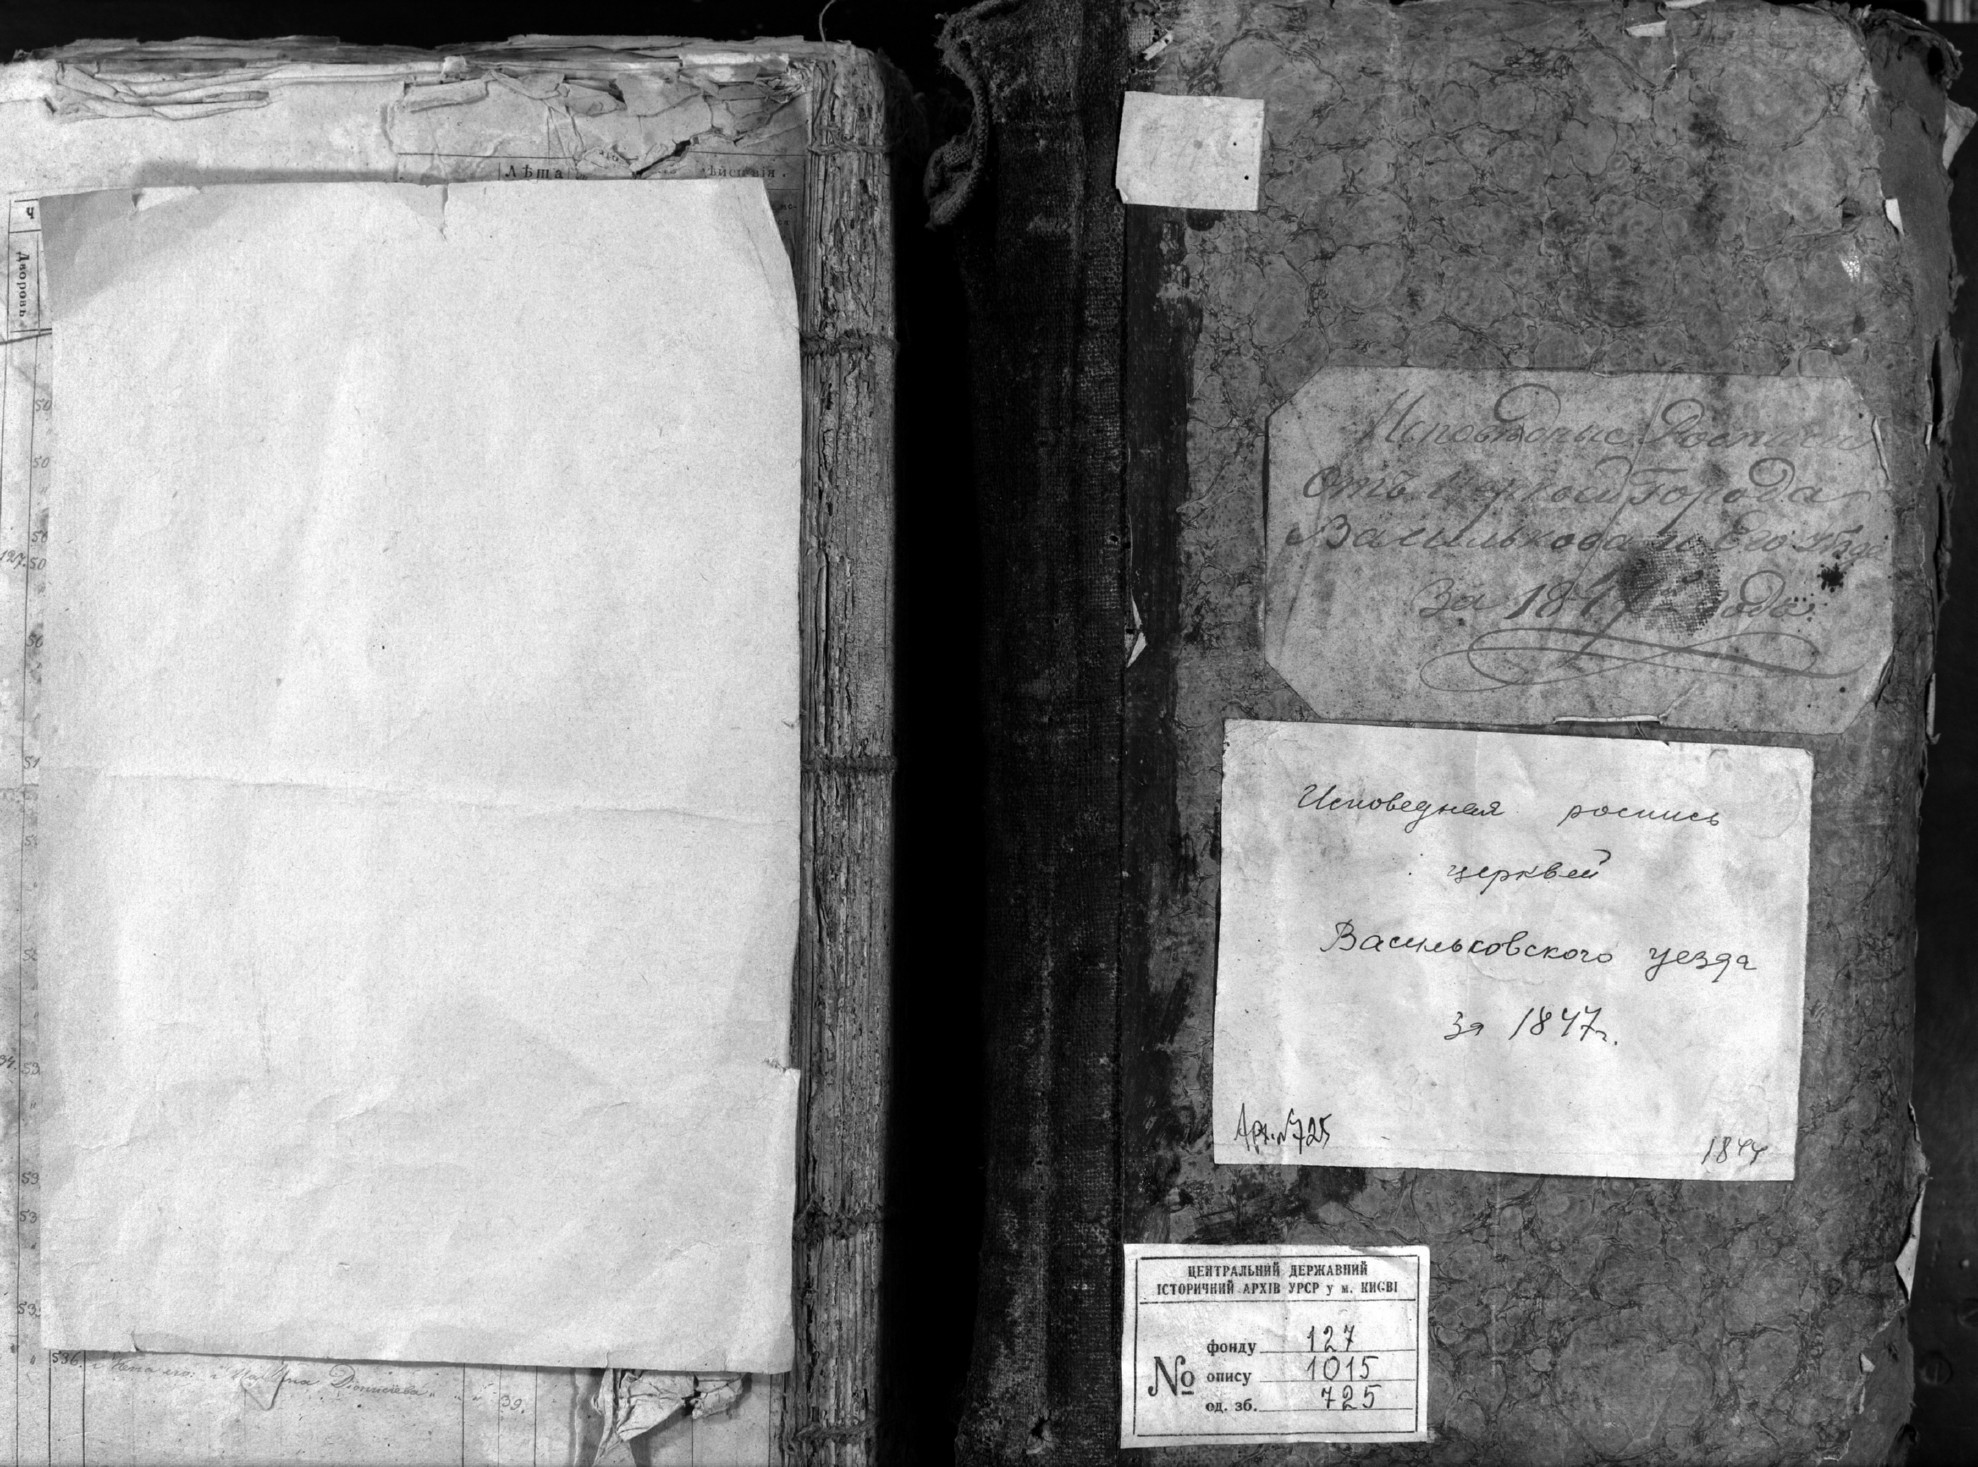 Лѣта
Ч
Дворовъ
50
50
50
50
51
53
53
536. Жена его: Дionисiева 39.
Исповѣдные Росписи
Отъ Церквей Города
Василькова и Его Уѣзда
За 1847 года.
Исповедная роспись
церквей
Васильковского уезда
за 1847г.
Арх. №725
1844
ЦЕНТРАЛЬНИЙ ДЕРЖАВНИЙ
ІСТОРИЧНИЙ АРХІВ УРСР у м. КИЄВІ
№
фонду 127
опису 1015
од. зб. 725